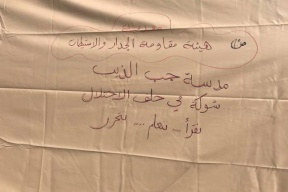 من هيئة مقاومة الجدار والاستيطان
مدرسة جب الذيب
شوكة في حلق الاحتلال
نقرأ .. نعلم ... نتحرر